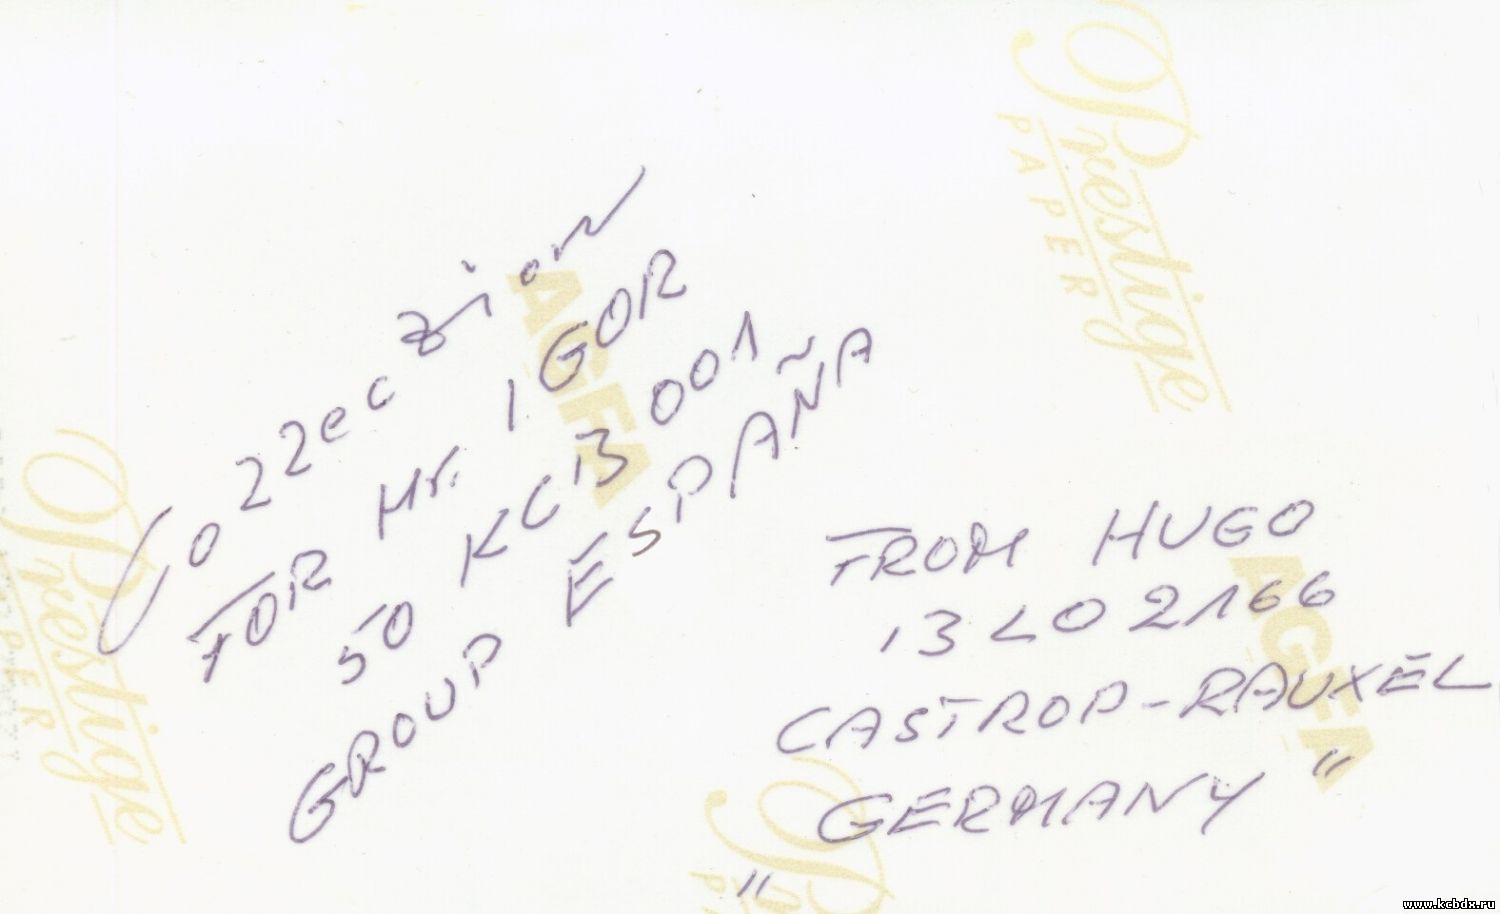 Colleczion
FOR Mr. IGOR
50 KCB 001
GROUP ESPAÑA
FROM HUGO
13 LO 2166
CASTROP-RAUXEL
GERMANY "
"
Prestige
PAPER
AGFA
Prestige
PAPER
AGFA
www.kcbdx.ru